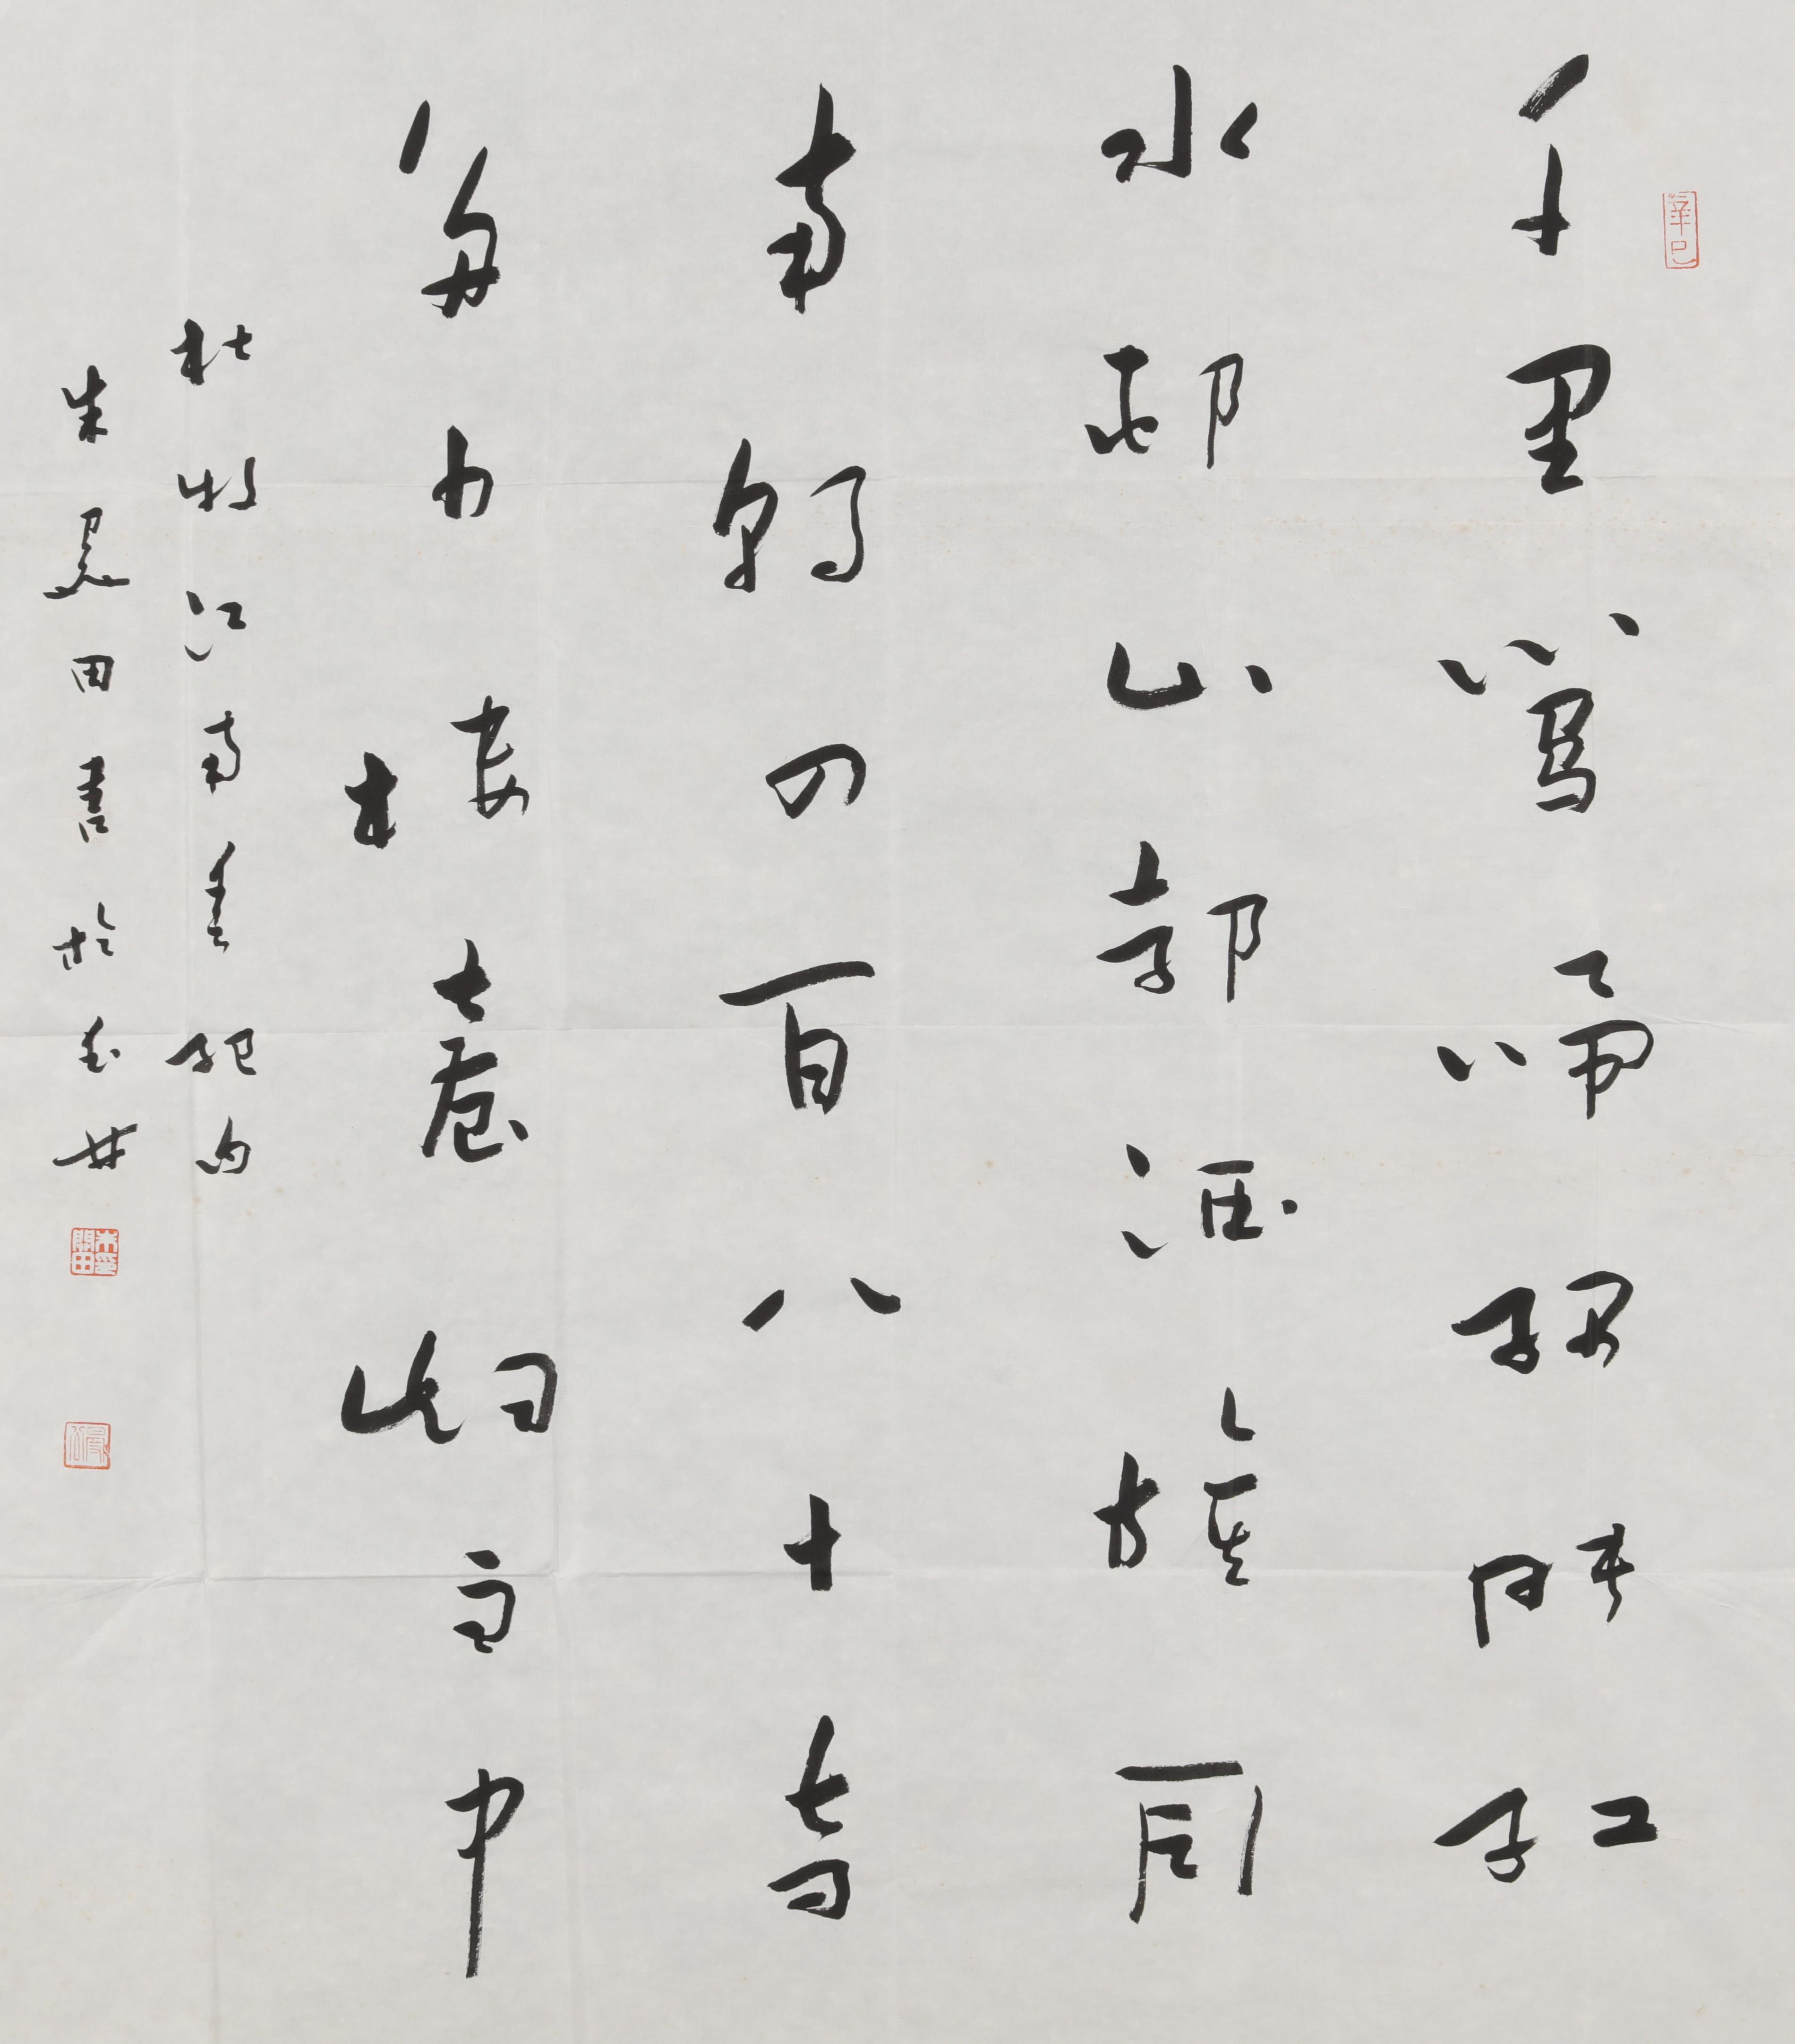 辛巳
千里鶯啼綠映紅
水邨山郭酒旗風
南朝四百八十寺
多少樓臺煙雨中
杜牧江南春絕句
朱關田書於
朱關田印